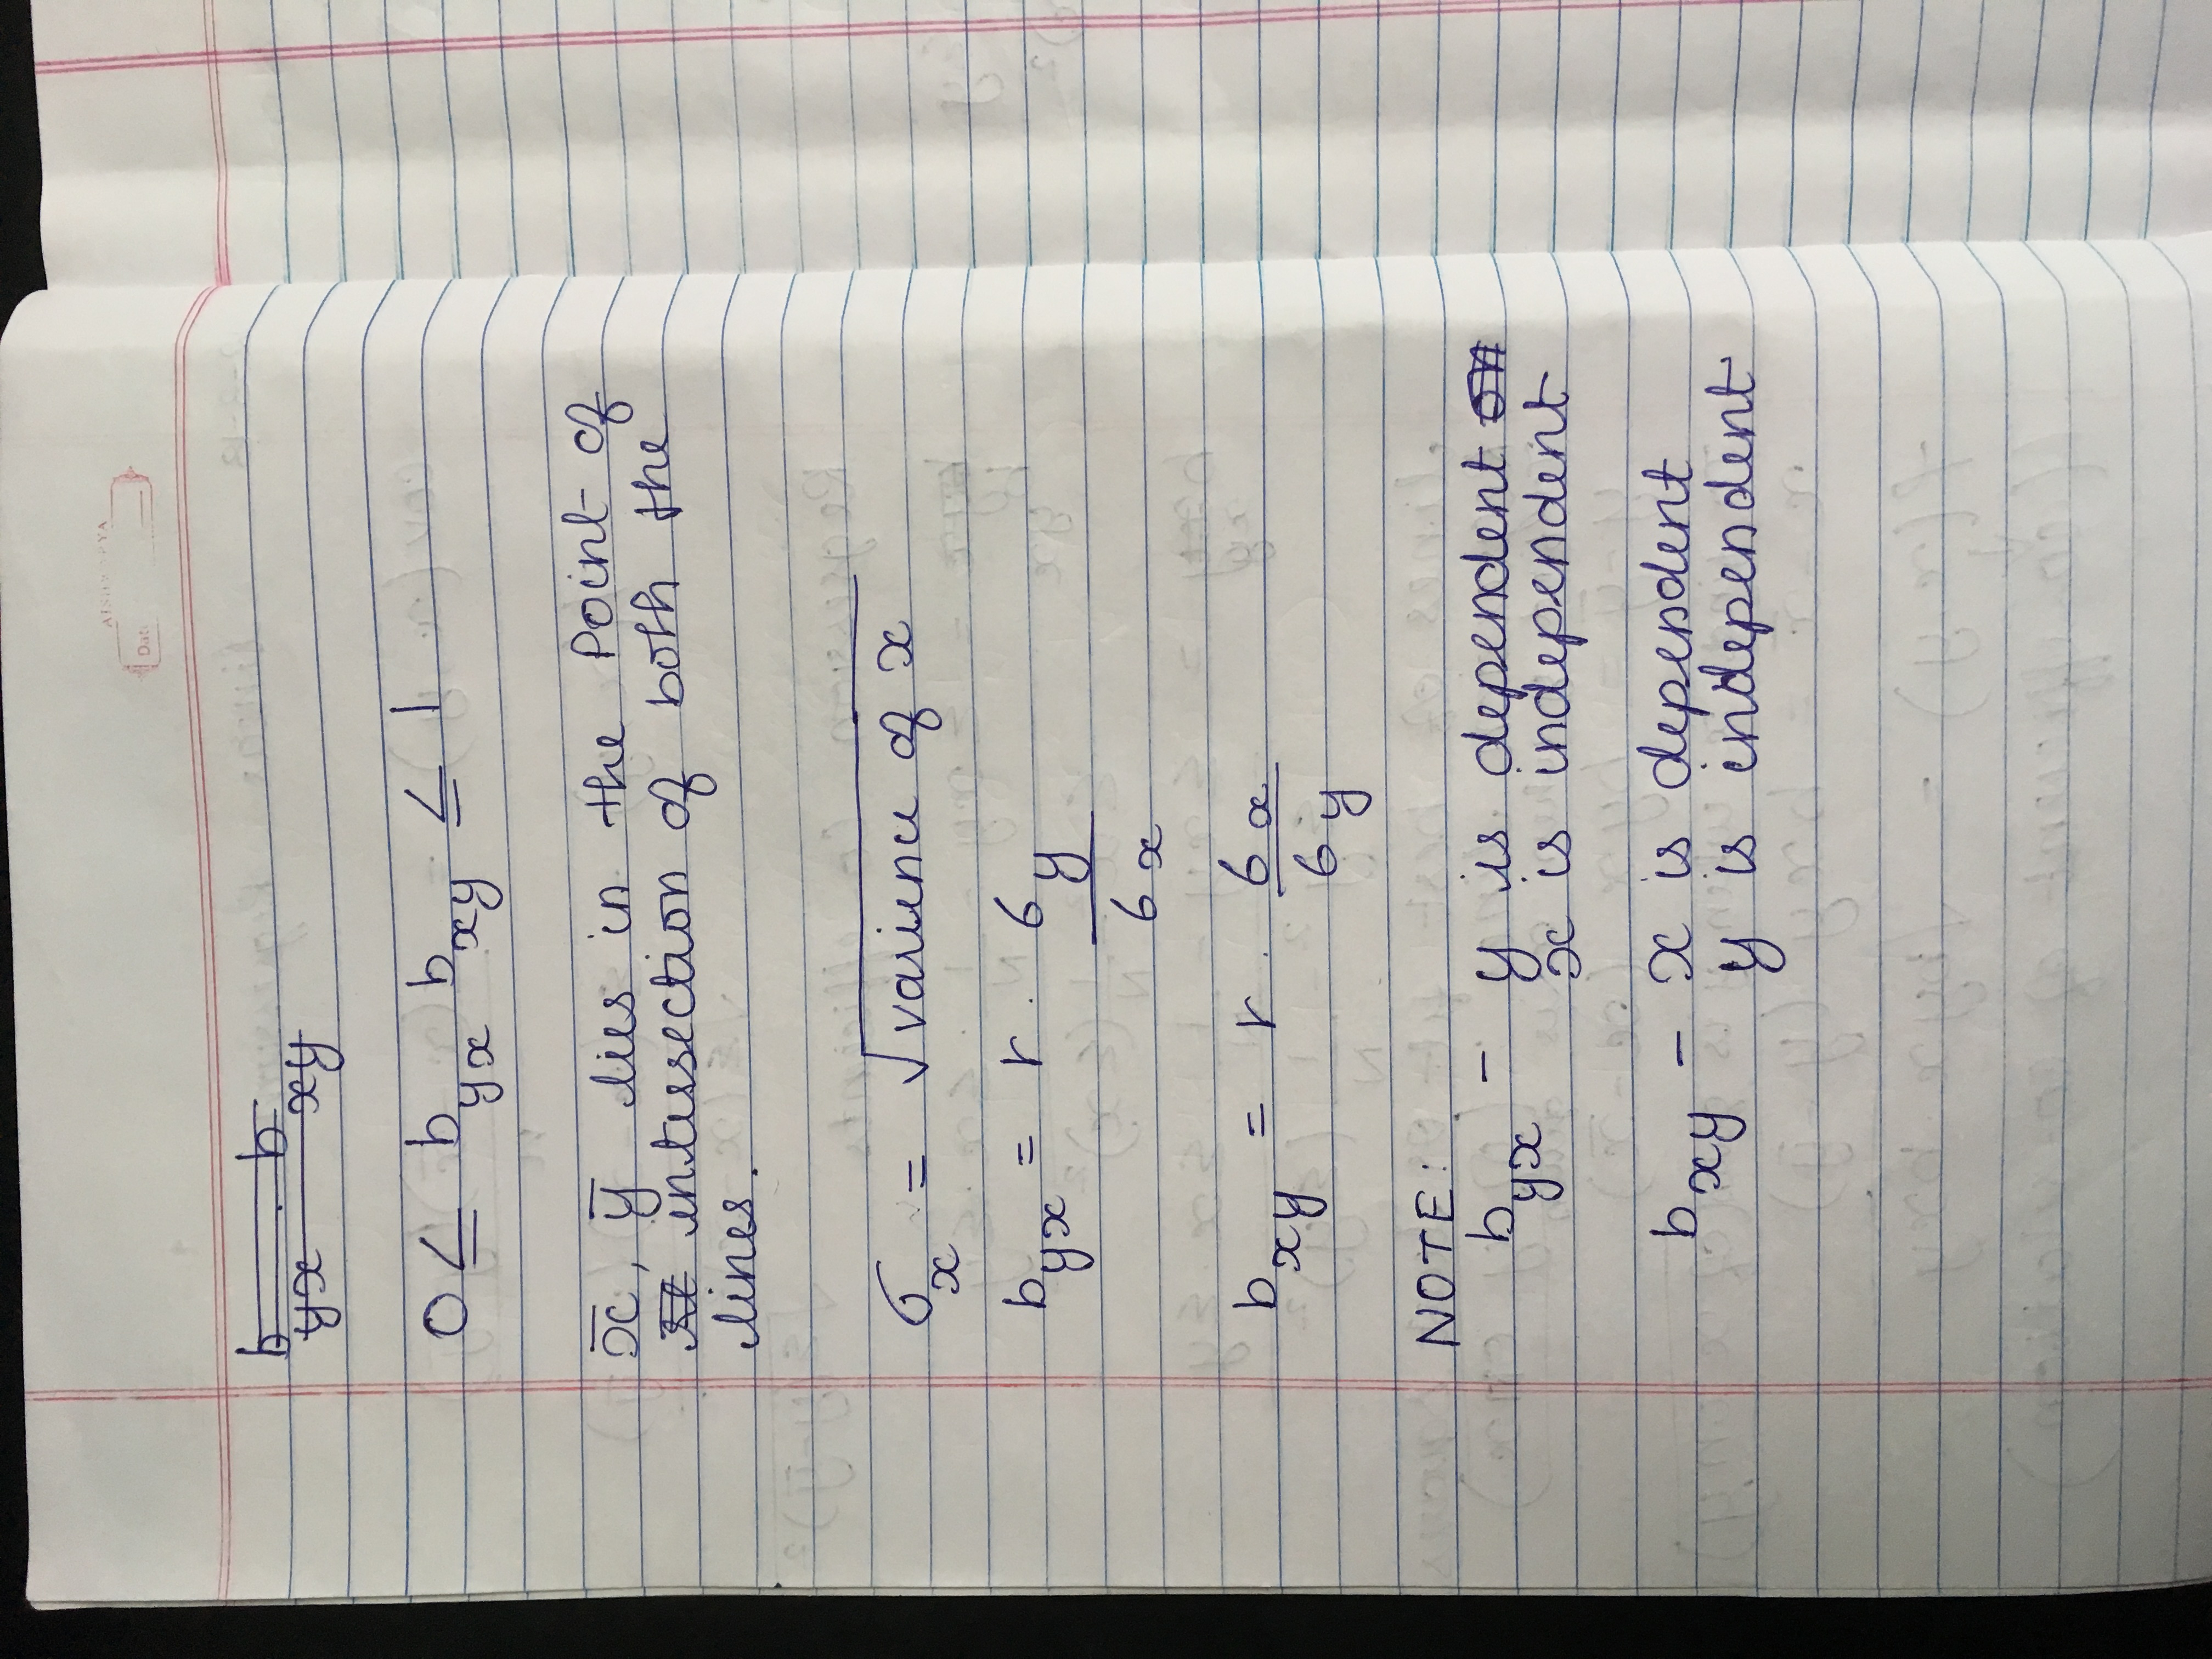 Date
b̶y̶x̶ . b̶x̶y̶
0 ≤ b_yx b_xy ≤ 1
x̄, ȳ lies in the Point of
intersection of both the
lines.
σ_x = √varience of x
b_yx = r . σ_y / σ_x
b_xy = r . σ_x / σ_y
NOTE:
b_yx - y is dependent o̶n̶
x is independent
b_xy - x is dependent
y is independent